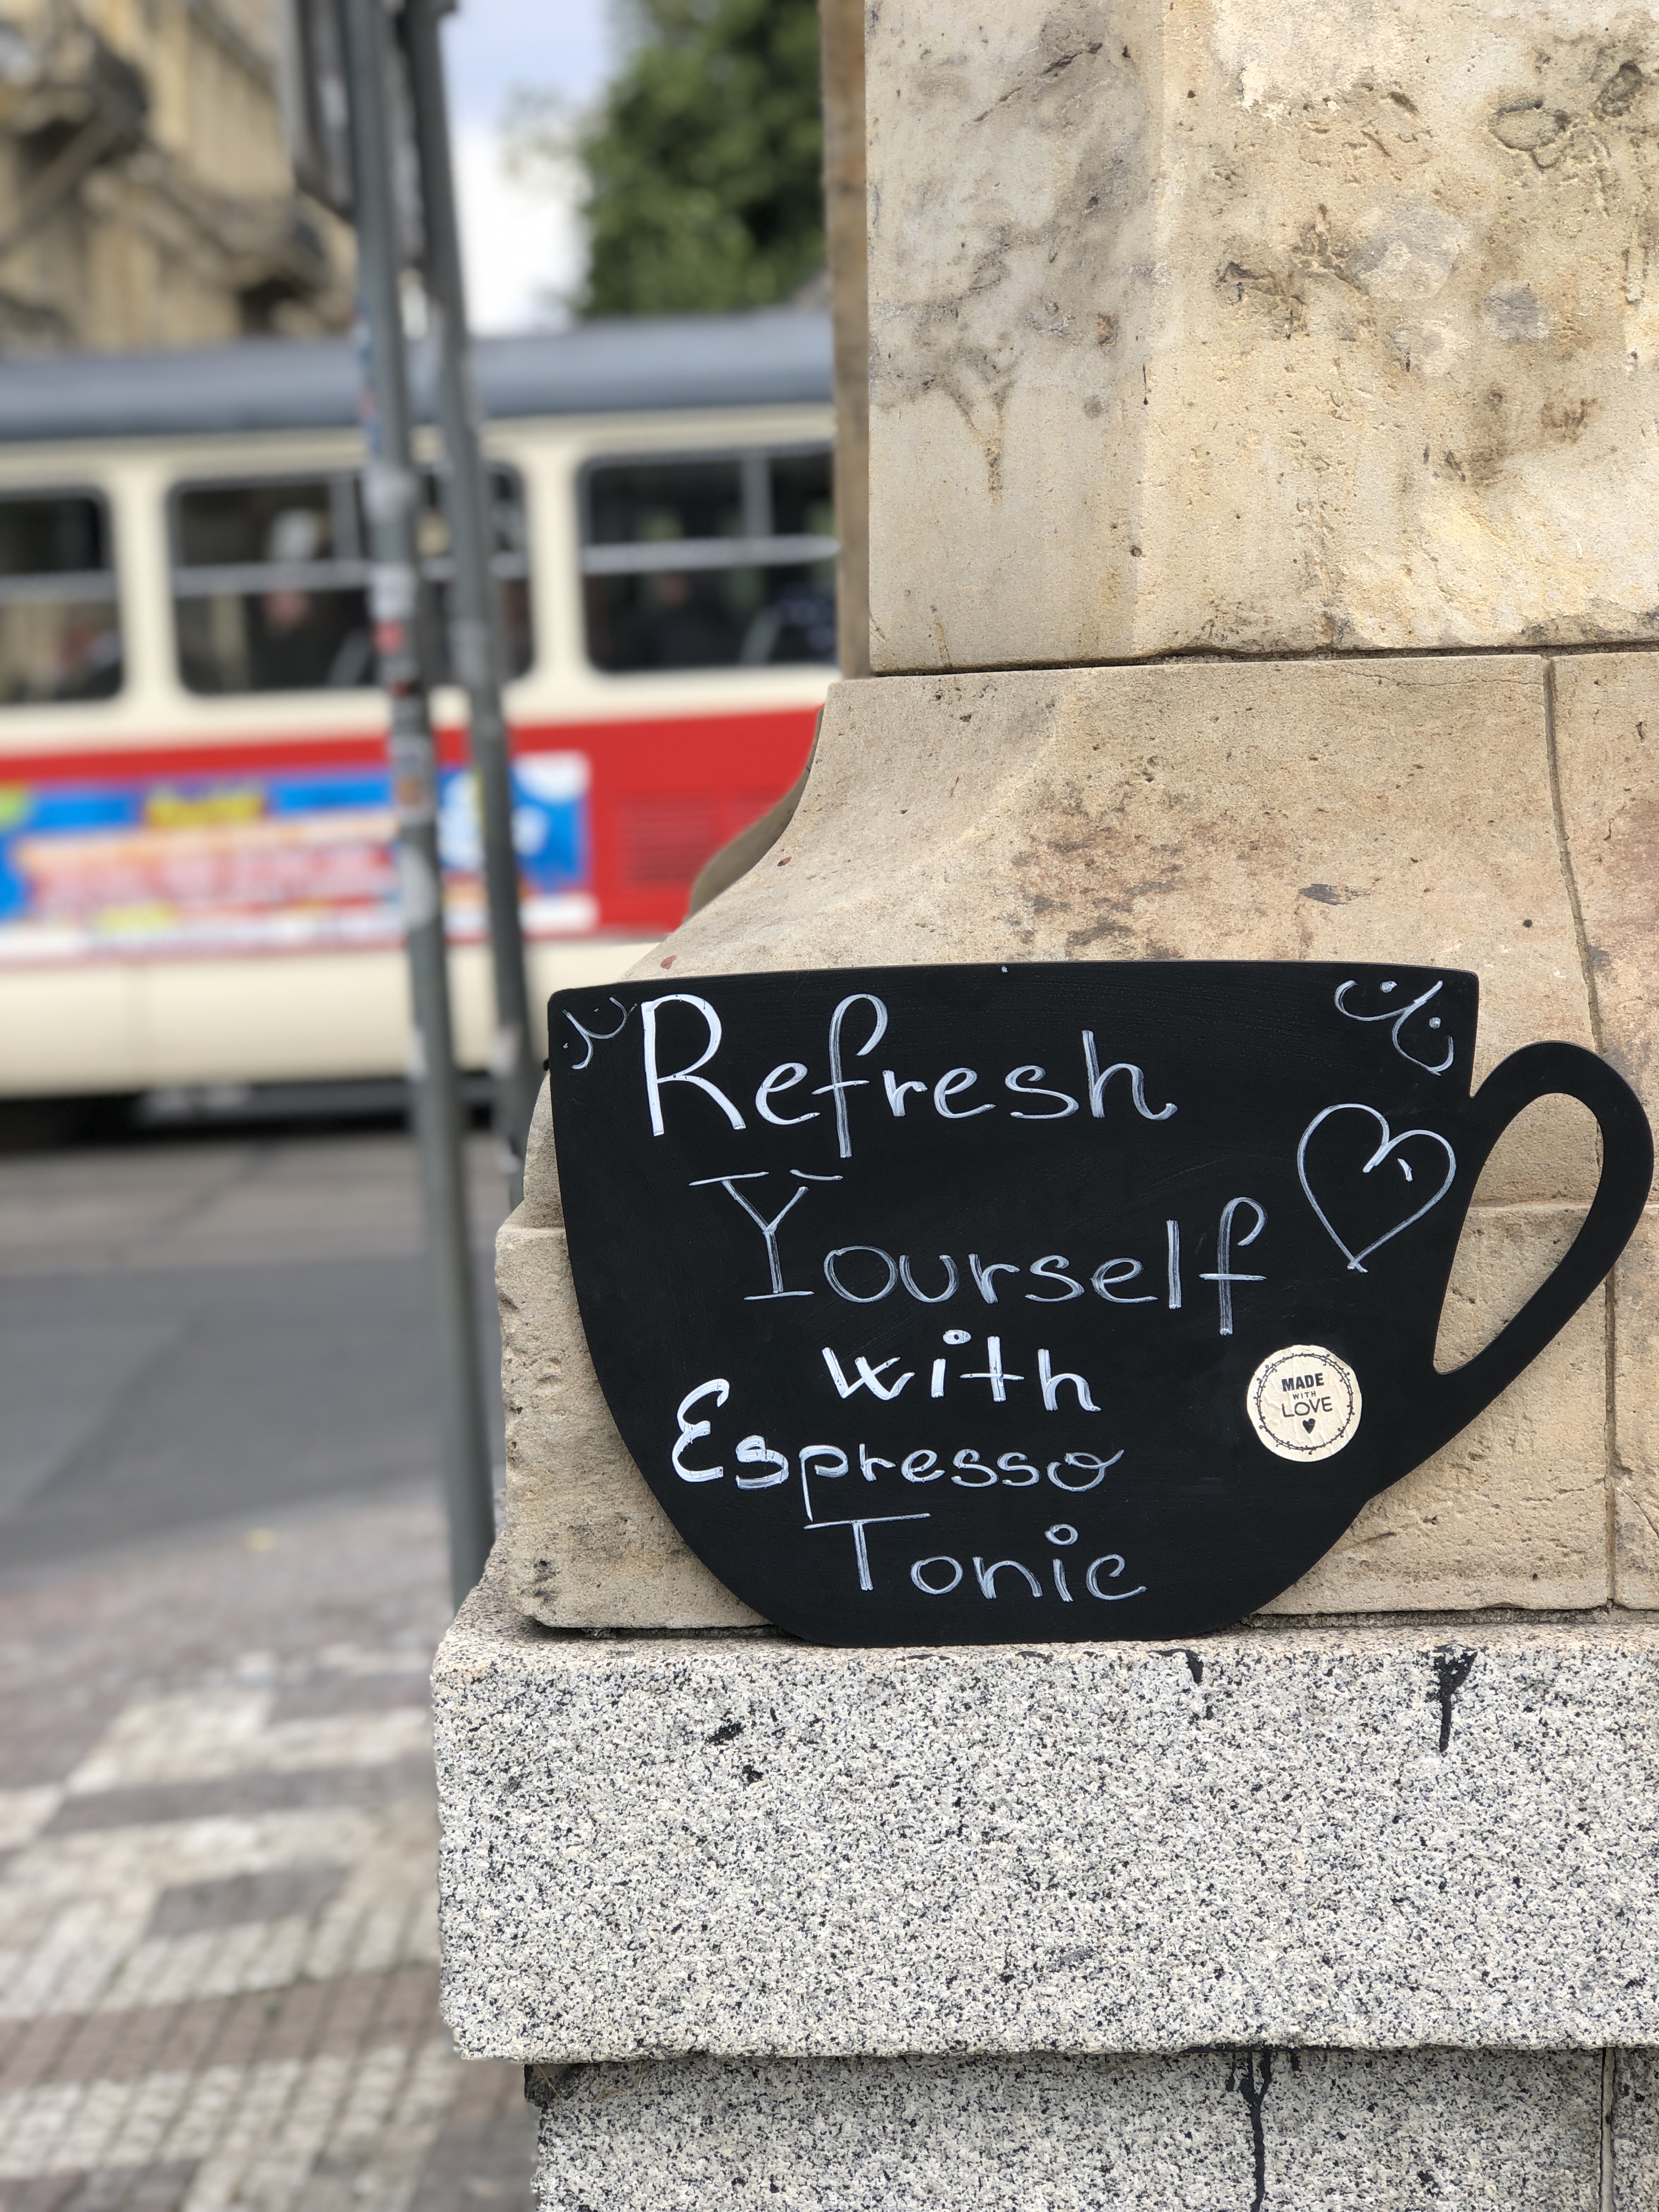 Refresh
Yourself
with
Espresso
Tonic
MADE
WITH
LOVE